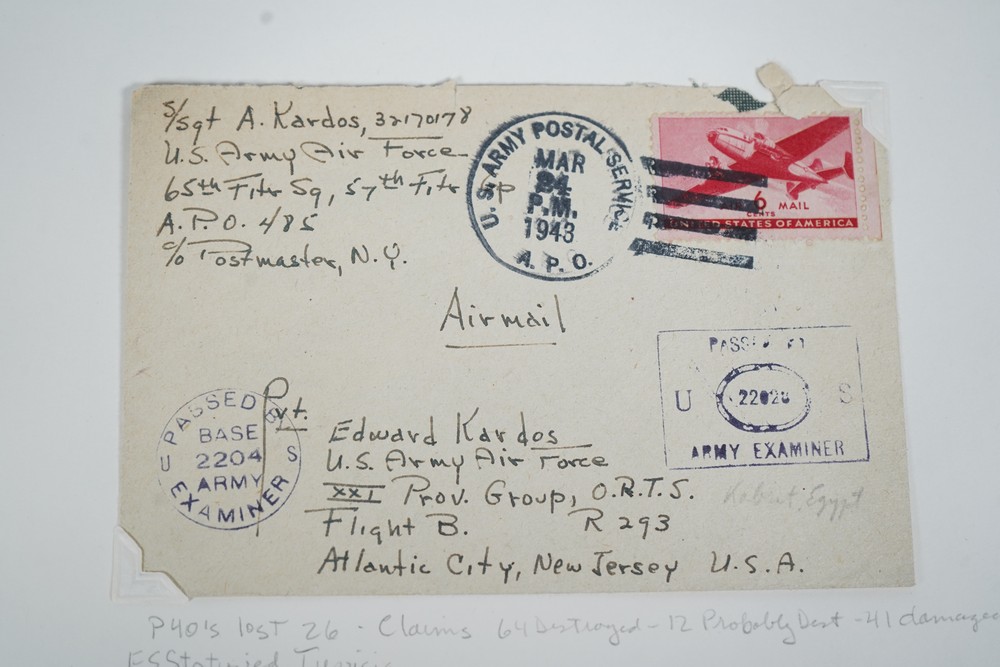 S/Sgt A. Kardos, 32170178
U.S. Army Air Force
65th Ftr Sq, 57th Ftr Grp
A.P.O. 485
c/o Postmaster, N.Y.
U.S. ARMY POSTAL SERVICE
MAR
24
P.M.
1943
A. P. O.
6 MAIL
CENTS
UNITED STATES OF AMERICA
Airmail
PASSED BY
U 22028 S
ARMY EXAMINER
PASSED BY
BASE
U 2204 S
ARMY
EXAMINER
Pvt.
Edward Kardos
U.S. Army Air Force
XXI Prov. Group, O.R.T.S.
Flight B. R 293
Atlantic City, New Jersey U.S.A.
Egypt
P40's lost 26 - Claims 64 Destroyed - 12 Probably Dest - 41 damaged